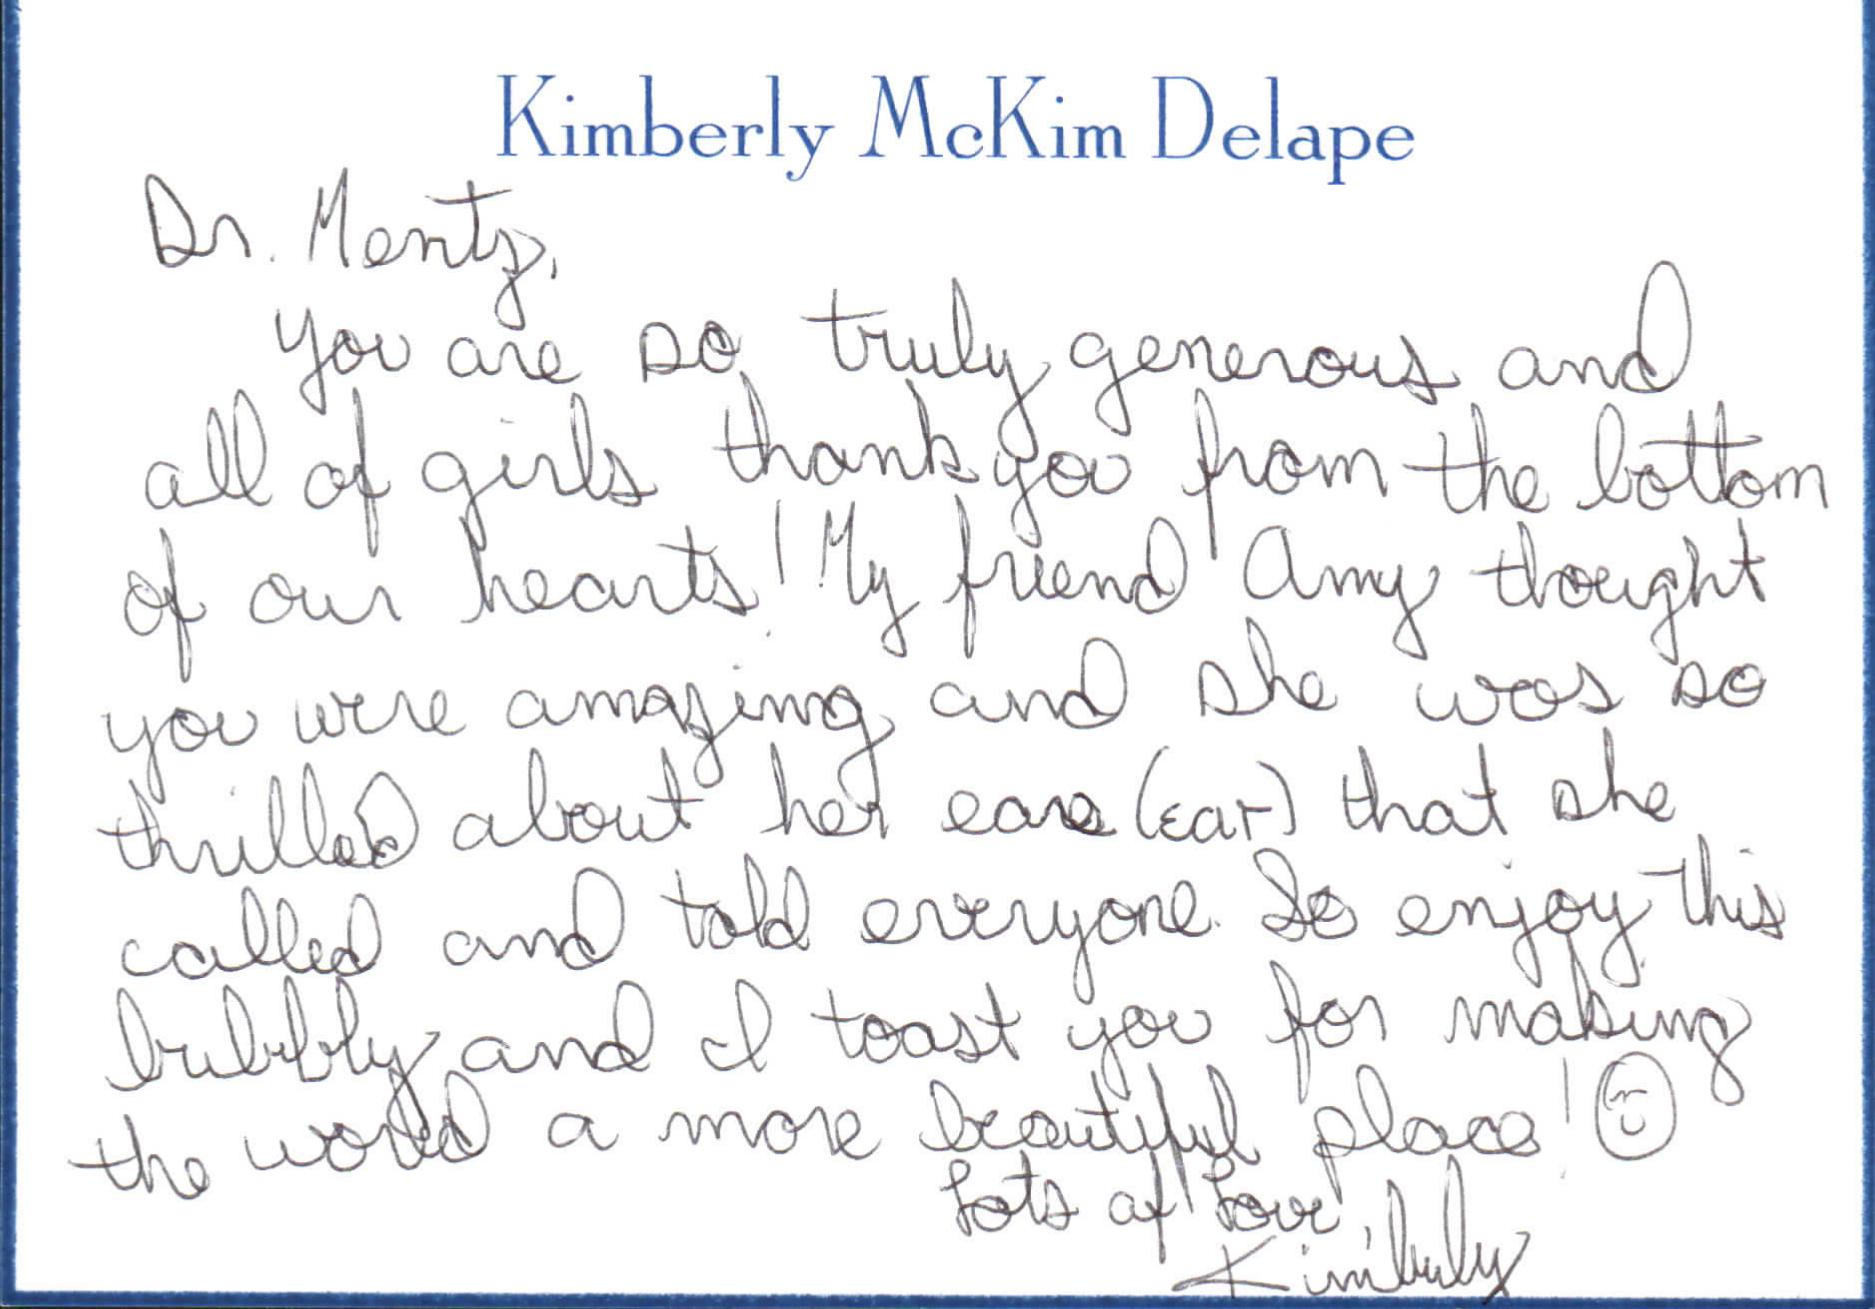 Kimberly McKim Delape
Dr. Mentz,
You are so truly generous and
all of girls thank you from the bottom
of our hearts! My friend Amy thought
you were amazing and she was so
thrilled about her ear (ear) that she
called and told everyone. So enjoy this
bubbly and I toast you for making
the world a more beautiful place!
Lots of Love,
Kimberly